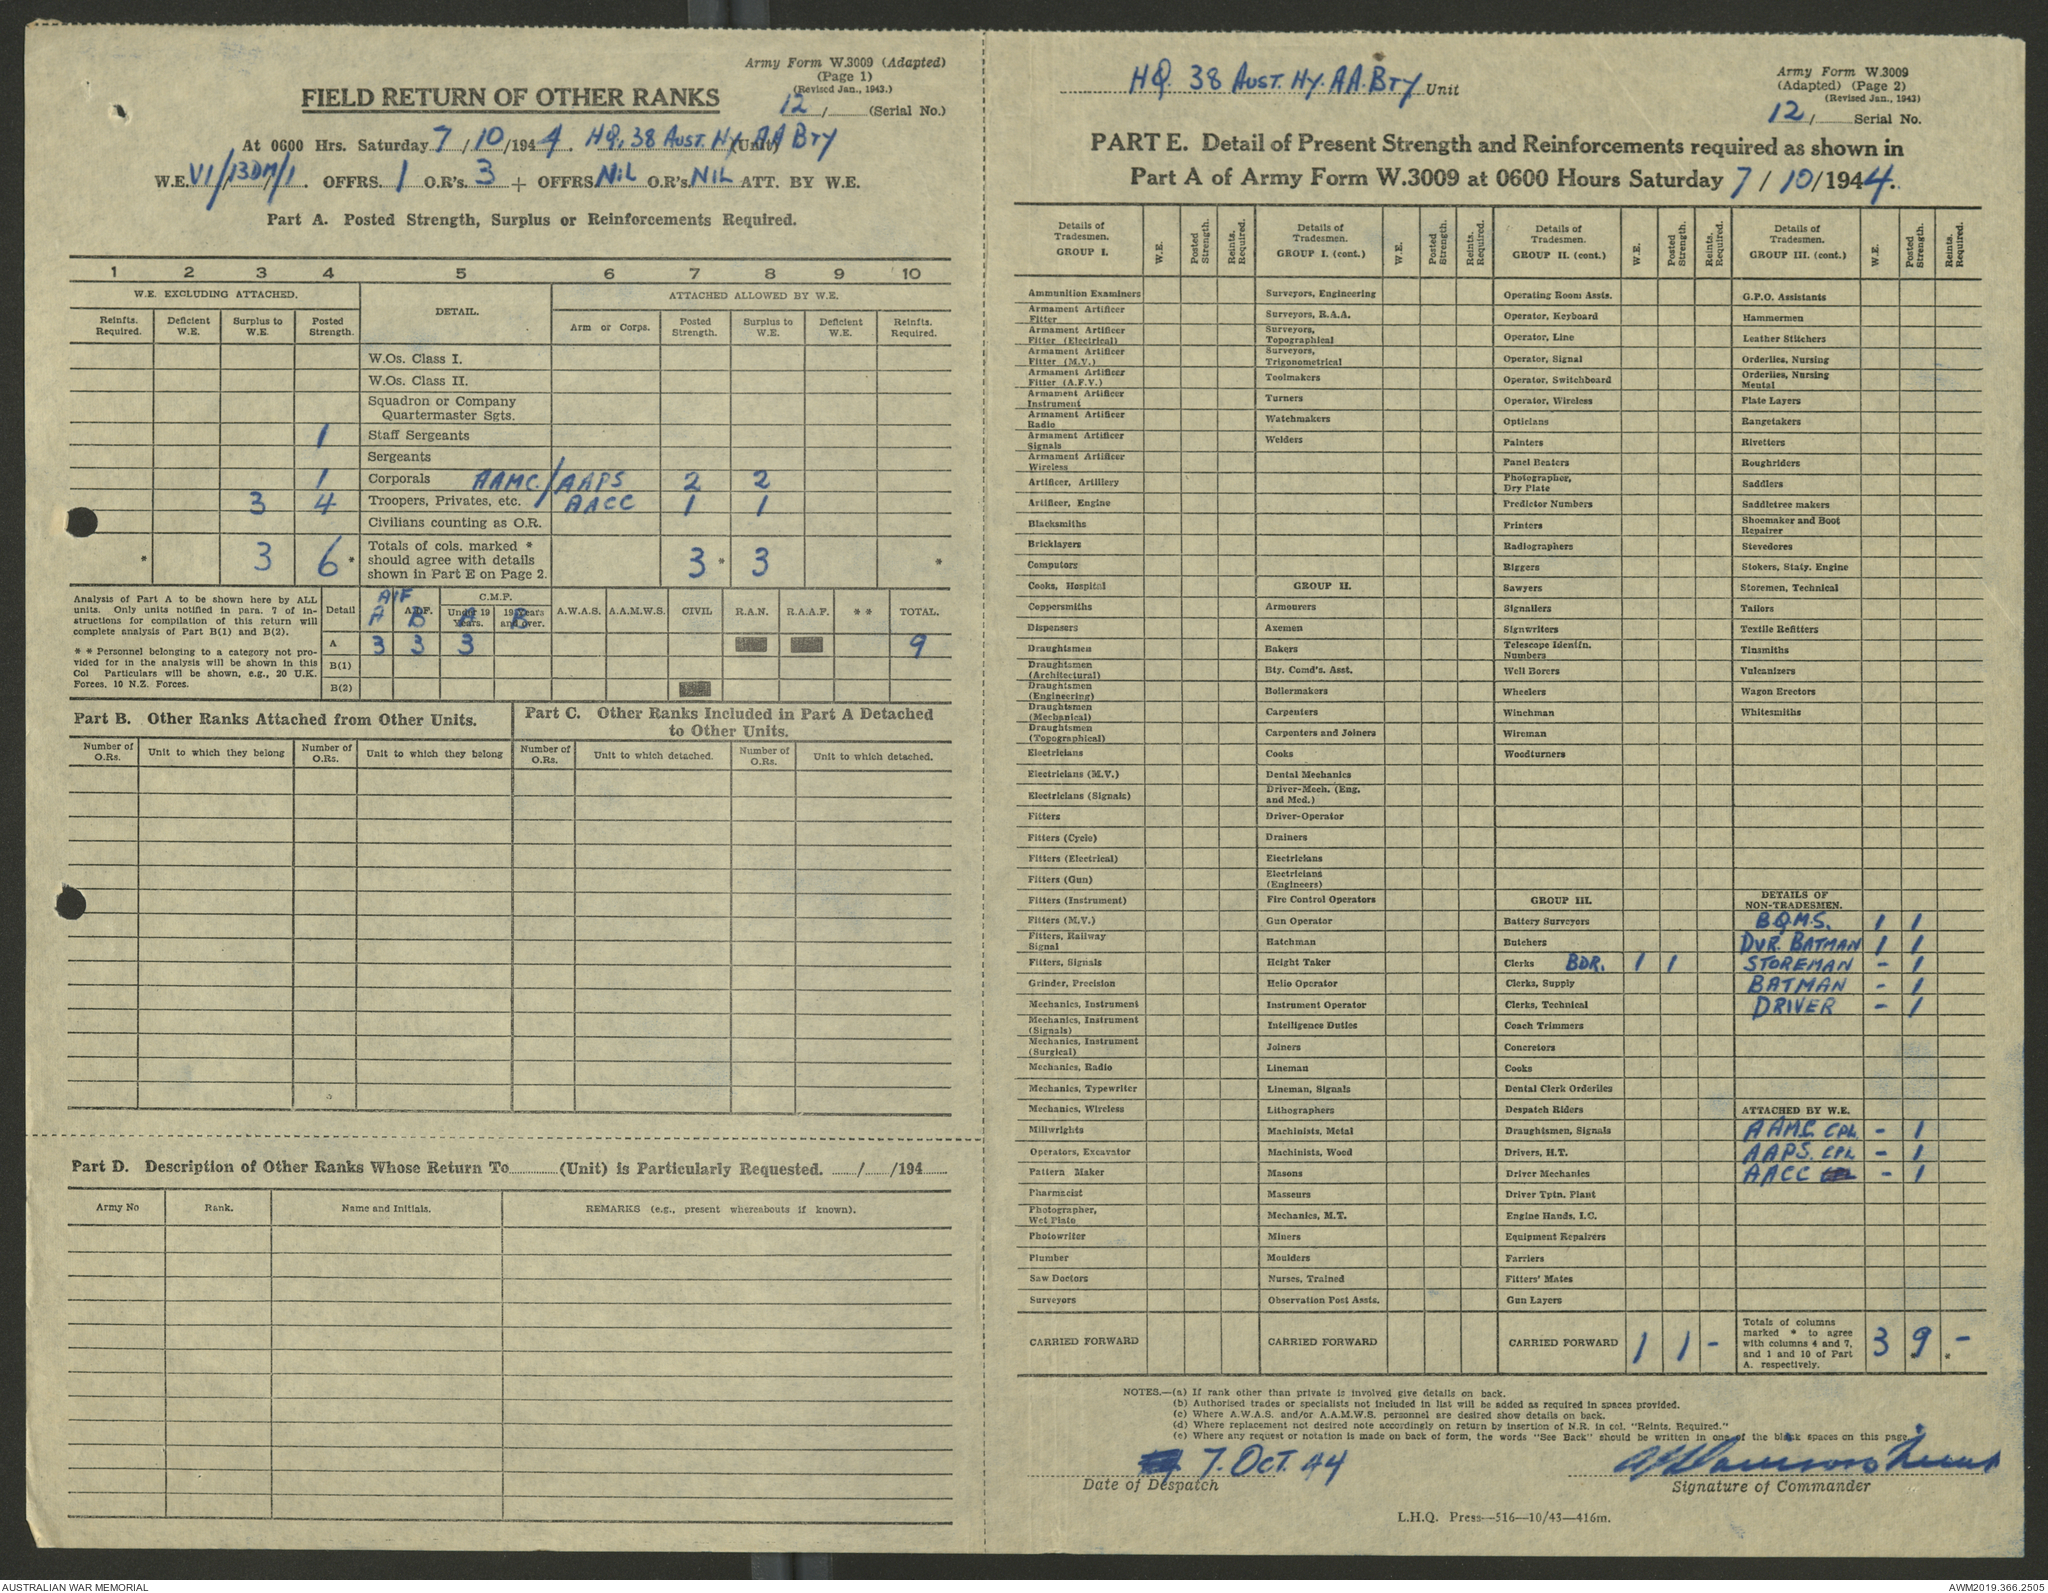 Army Form W.3009 (Adapted)
(Page 1)
(Revised Jan., 1943.)
FIELD RETURN OF OTHER RANKS
12 / (Serial No.)
At 0600 Hrs. Saturday 7 / 10 / 1944. HQ, 38 AUST. HY. AA BTY (Unit)
W.E. VI/13DM/1. OFFRS. 1 O.R's. 3 + OFFRS. NIL O.R's. NIL ATT. BY W.E.
Part A. Posted Strength, Surplus or Reinforcements Required.
1 2 3 4 5 6 7 8 9 10
W.E. EXCLUDING ATTACHED. DETAIL. ATTACHED ALLOWED BY W.E.
Reinfts. Required. Deficient W.E. Surplus to W.E. Posted Strength. Arm or Corps. Posted Strength. Surplus to W.E. Deficient W.E. Reinfts. Required.
W.Os. Class I.
W.Os. Class II.
Squadron or Company
Quartermaster Sgts.
1 Staff Sergeants
Sergeants
1 Corporals AAMC./AAPS 2 2
3 4 Troopers, Privates, etc. AACC 1 1
Civilians counting as O.R.
* 3 6 * Totals of cols. marked * 3 * 3 *
should agree with details
shown in Part E on Page 2.
Analysis of Part A to be shown here by ALL
units. Only units notified in para. 7 of in-
structions for compilation of this return will
complete analysis of Part B(1) and B(2).
* * Personnel belonging to a category not pro-
vided for in the analysis will be shown in this
Col Particulars will be shown, e.g., 20 U.K.
Forces, 10 N.Z. Forces.
AIF C.M.F.
Detail A B A.I.F. Under 19 Years. A 19 Years and over. B A.W.A.S. A.A.M.W.S. CIVIL R.A.N. R.A.A.F. * * TOTAL.
A 3 3 3 9
B(1)
B(2)
Part B. Other Ranks Attached from Other Units.
Part C. Other Ranks Included in Part A Detached
to Other Units.
Number of O.Rs. Unit to which they belong Number of O.Rs. Unit to which they belong Number of O.Rs. Unit to which detached. Number of O.Rs. Unit to which detached.
Part D. Description of Other Ranks Whose Return To (Unit) is Particularly Requested. / /194
Army No Rank. Name and Initials. REMARKS (e.g., present whereabouts if known).
HQ. 38 AUST. HY. AA. BTY Unit
Army Form W.3009
(Adapted) (Page 2)
(Revised Jan., 1943)
12 / Serial No.
PART E. Detail of Present Strength and Reinforcements required as shown in
Part A of Army Form W.3009 at 0600 Hours Saturday 7 / 10 / 1944.
Details of Tradesmen. GROUP I. W.E. Posted Strength. Reints. Required.
Ammunition Examiners
Armament Artificer Fitter
Armament Artificer Fitter (Electrical)
Armament Artificer Fitter (M.V.)
Armament Artificer Fitter (A.F.V.)
Armament Artificer Instrument
Armament Artificer Radio
Armament Artificer Signals
Armament Artificer Wireless
Artificer, Artillery
Artificer, Engine
Blacksmiths
Bricklayers
Computors
Cooks, Hospital
Coppersmiths
Dispensers
Draughtsmen
Draughtsmen (Architectural)
Draughtsmen (Engineering)
Draughtsmen (Mechanical)
Draughtsmen (Topographical)
Electricians
Electricians (M.V.)
Electricians (Signals)
Fitters
Fitters (Cycle)
Fitters (Electrical)
Fitters (Gun)
Fitters (Instrument)
Fitters (M.V.)
Fitters, Railway Signal
Fitters, Signals
Grinder, Precision
Mechanics, Instrument
Mechanics, Instrument (Signals)
Mechanics, Instrument (Surgical)
Mechanics, Radio
Mechanics, Typewriter
Mechanics, Wireless
Millwrights
Operators, Excavator
Pattern Maker
Pharmacist
Photographer, Wet Plate
Photowriter
Plumber
Saw Doctors
Surveyors
CARRIED FORWARD
Details of Tradesmen. GROUP I. (cont.) W.E. Posted Strength. Reints. Required.
Surveyors, Engineering
Surveyors, R.A.A.
Surveyors, Topographical
Surveyors, Trigonometrical
Toolmakers
Turners
Watchmakers
Welders
GROUP II.
Armourers
Axemen
Bakers
Bty. Comd's. Asst.
Boilermakers
Carpenters
Carpenters and Joiners
Cooks
Dental Mechanics
Driver-Mech. (Eng. and Med.)
Driver-Operator
Drainers
Electricians
Electricians (Engineers)
Fire Control Operators
Gun Operator
Hatchman
Height Taker
Helio Operator
Instrument Operator
Intelligence Duties
Joiners
Lineman
Lineman, Signals
Lithographers
Machinists, Metal
Machinists, Wood
Masons
Masseurs
Mechanics, M.T.
Miners
Moulders
Nurses, Trained
Observation Post Assts.
CARRIED FORWARD
Details of Tradesmen. GROUP II. (cont.) W.E. Posted Strength. Reints. Required.
Operating Room Assts.
Operator, Keyboard
Operator, Line
Operator, Signal
Operator, Switchboard
Operator, Wireless
Opticians
Painters
Panel Beaters
Photographer, Dry Plate
Predictor Numbers
Printers
Radiographers
Riggers
Sawyers
Signallers
Signwriters
Telescope Identfn. Numbers
Well Borers
Wheelers
Winchman
Wireman
Woodturners
GROUP III.
Battery Surveyors
Butchers
Clerks BDR. 1 1
Clerks, Supply
Clerks, Technical
Coach Trimmers
Concretors
Cooks
Dental Clerk Orderlies
Despatch Riders
Draughtsmen, Signals
Drivers, H.T.
Driver Mechanics
Driver Tptn. Plant
Engine Hands, I.C.
Equipment Repairers
Farriers
Fitters' Mates
Gun Layers
CARRIED FORWARD 1 1 -
Details of Tradesmen. GROUP III. (cont.) W.E. Posted Strength. Reints. Required.
G.P.O. Assistants
Hammermen
Leather Stitchers
Orderlies, Nursing
Orderlies, Nursing Mental
Plate Layers
Rangetakers
Rivetters
Roughriders
Saddlers
Saddletree makers
Shoemaker and Boot Repairer
Stevedores
Stokers, Staty. Engine
Storemen, Technical
Tailors
Textile Refitters
Tinsmiths
Vulcanizers
Wagon Erectors
Whitesmiths
DETAILS OF
NON-TRADESMEN.
B.Q.M.S. 1 1
DVR. BATMAN 1 1
STOREMAN - 1
BATMAN - 1
DRIVER - 1
ATTACHED BY W.E.
AAMC CPL - 1
AAPS. CPL - 1
AACC - 1
Totals of columns
marked * to agree
with columns 4 and 7,
and 1 and 10 of Part
A. respectively. 3 9 * -
NOTES.—(a) If rank other than private is involved give details on back.
(b) Authorised trades or specialists not included in list will be added as required in spaces provided.
(c) Where A.W.A.S. and/or A.A.M.W.S. personnel are desired show details on back.
(d) Where replacement not desired note accordingly on return by insertion of N.R. in col. "Reints. Required."
(e) Where any request or notation is made on back of form, the words "See Back" should be written in one of the blank spaces on this page.
7. OCT. 44
Date of Despatch
Signature of Commander
L.H.Q. Press—516—10/43—416m.
AUSTRALIAN WAR MEMORIAL
AWM2019.366.2505